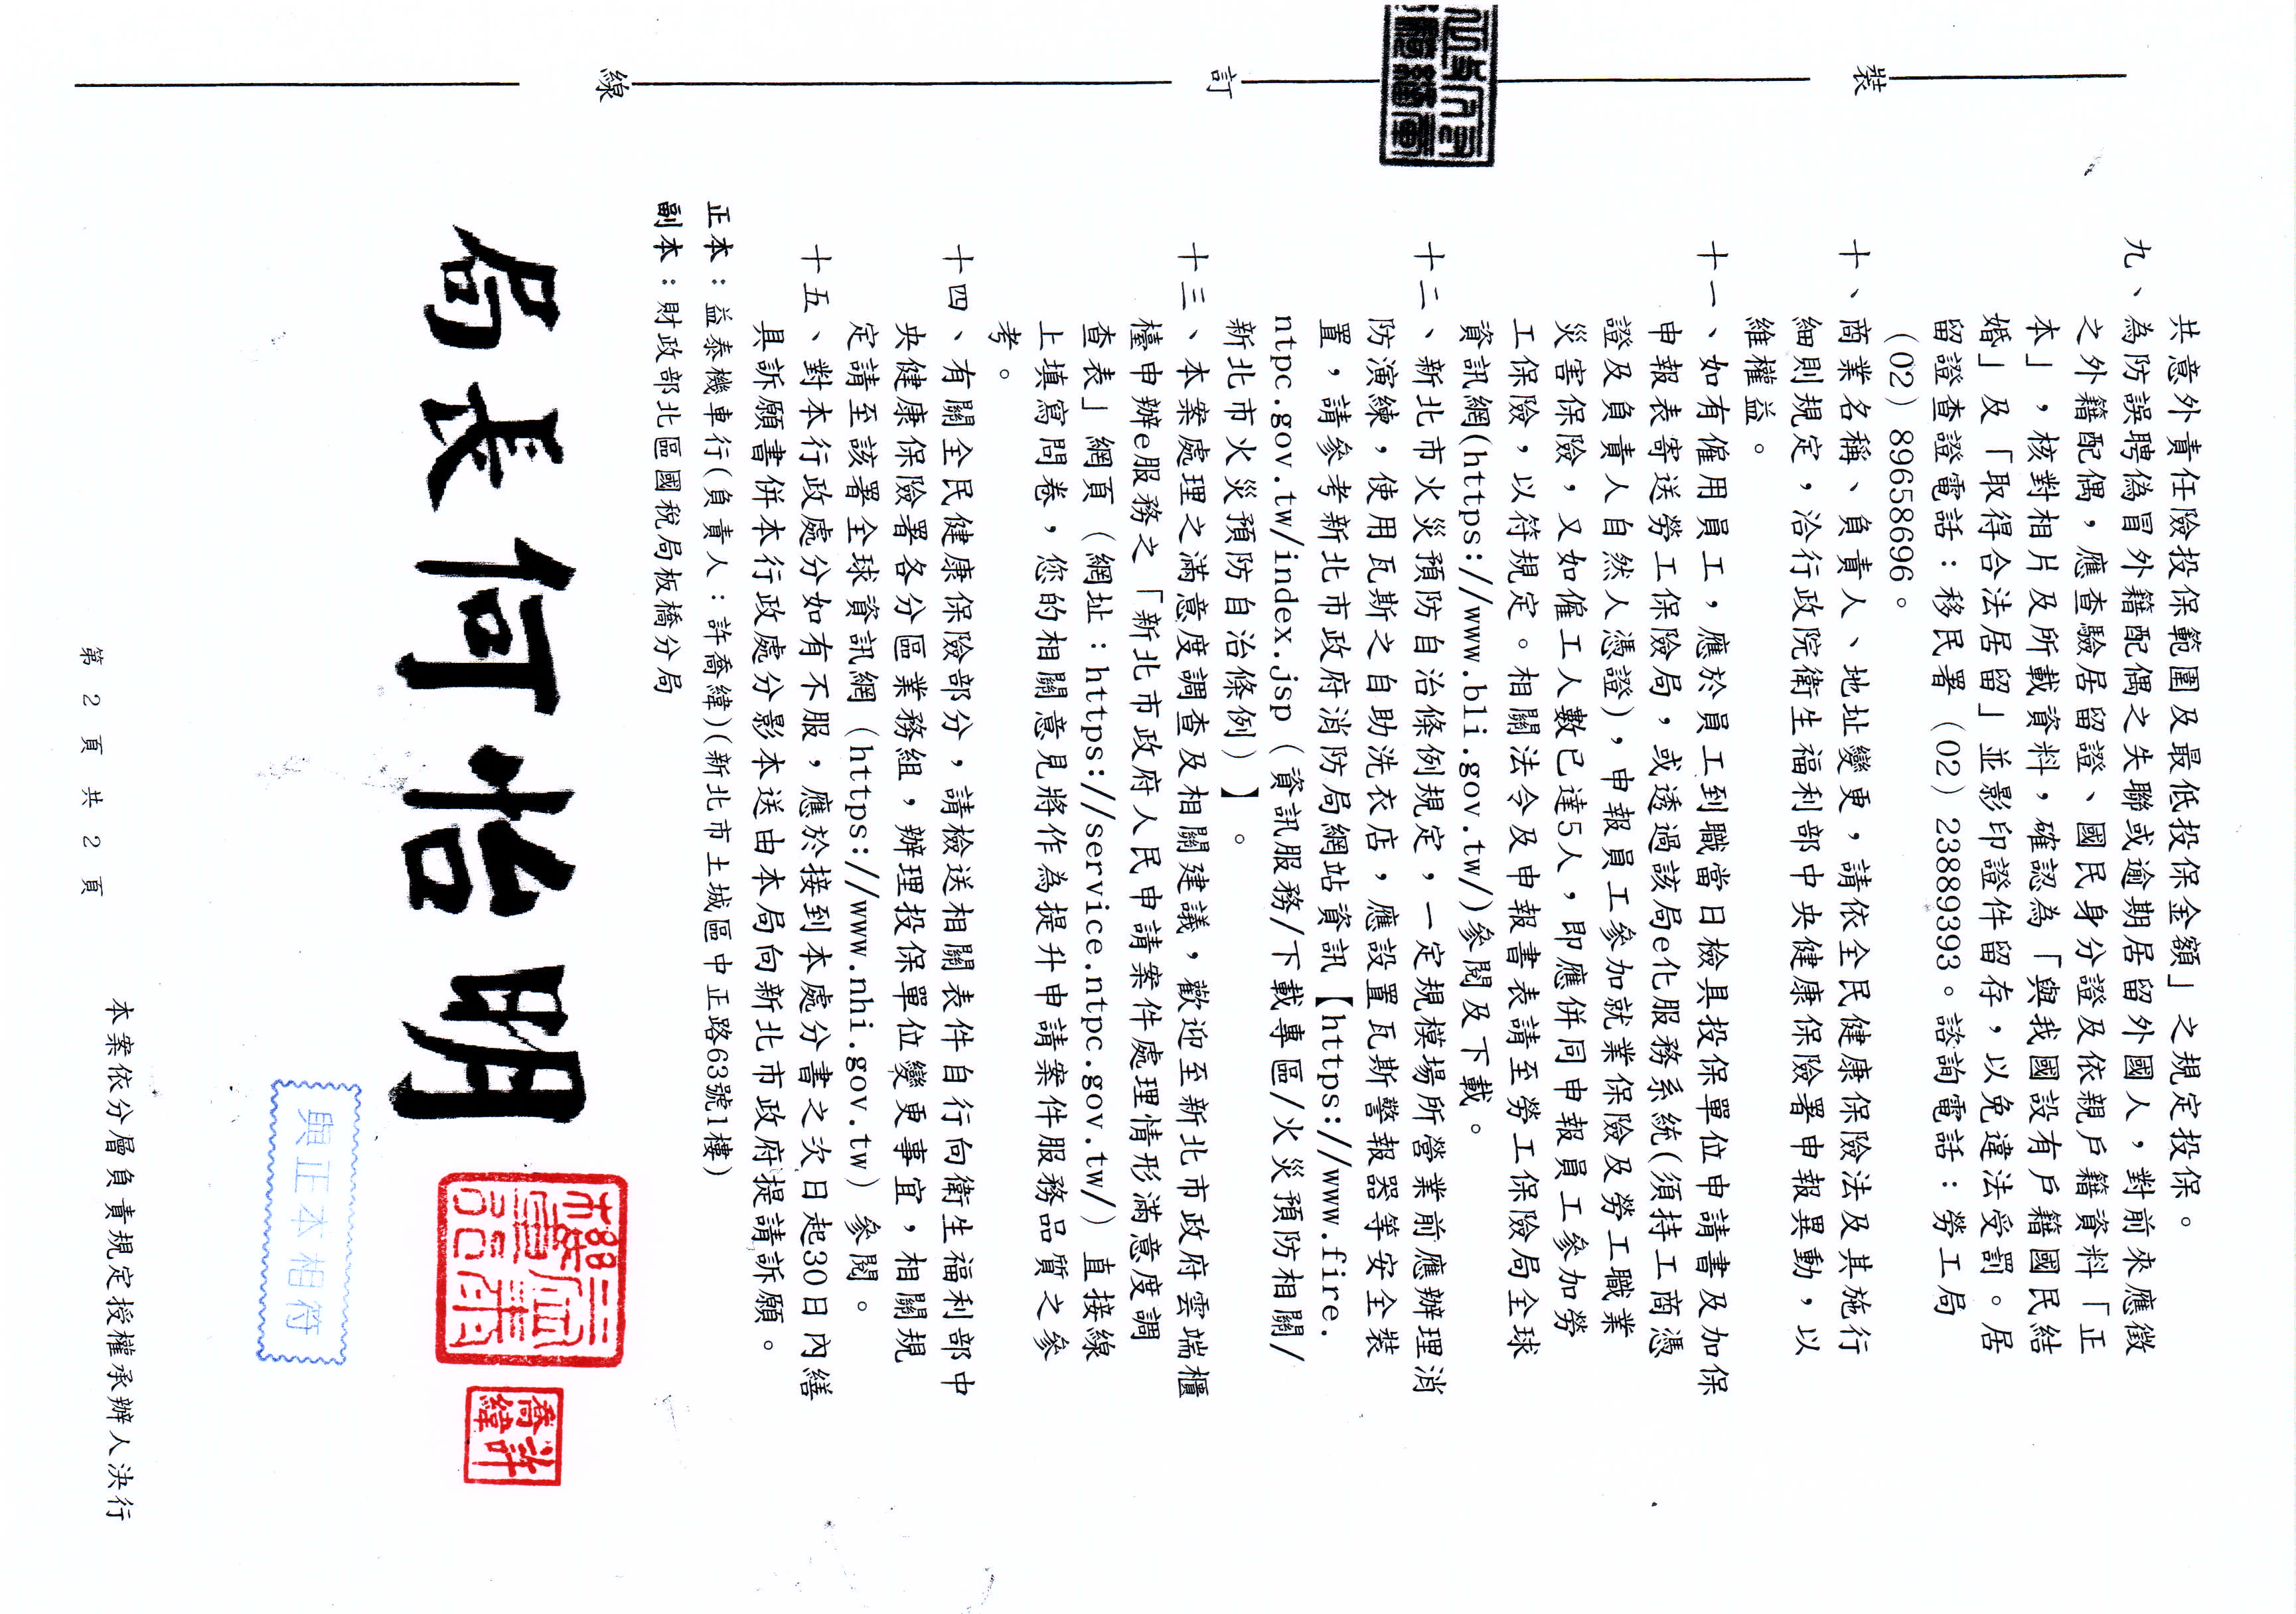 共意外責任險投保範圍及最低投保金額」之規定投保。
九、為防誤聘偽冒外籍配偶之失聯或逾期居留外國人，對前來應徵
之外籍配偶，應查驗居留證、國民身分證及依親戶籍資料「正
本」，核對相片及所載資料，確認為「與我國設有戶籍國民結
婚」及「取得合法居留」並影印證件留存，以免違法受罰。居
留證查證電話：移民署（02）23889393。諮詢電話：勞工局
（02）89658696。
十、商業名稱、負責人、地址變更，請依全民健康保險法及其施行
細則規定，洽行政院衛生福利部中央健康保險署申報異動，以
維權益。
十一、如有僱用員工，應於員工到職當日檢具投保單位申請書及加保
申報表寄送勞工保險局，或透過該局e化服務系統(須持工商憑
證及負責人自然人憑證)，申報員工參加就業保險及勞工職業
災害保險，又如僱工人數已達5人，即應併同申報員工參加勞
工保險，以符規定。相關法令及申報書表請至勞工保險局全球
資訊網(https://www.bli.gov.tw/)參閱及下載。
十二、新北市火災預防自治條例規定，一定規模場所營業前應辦理消
防演練，使用瓦斯之自助洗衣店，應設置瓦斯警報器等安全裝
置，請參考新北市政府消防局網站資訊【https://www.fire.
ntpc.gov.tw/index.jsp（資訊服務/下載專區/火災預防相關/
新北市火災預防自治條例）】。
十三、本案處理之滿意度調查及相關建議，歡迎至新北市政府雲端櫃
檯申辦e服務之「新北市政府人民申請案件處理情形滿意度調
查表」網頁（網址：https://service.ntpc.gov.tw/）直接線
上填寫問卷，您的相關意見將作為提升申請案件服務品質之參
考。
十四、有關全民健康保險部分，請檢送相關表件自行向衛生福利部中
央健康保險署各分區業務組，辦理投保單位變更事宜，相關規
定請至該署全球資訊網（https://www.nhi.gov.tw）參閱。
十五、對本行政處分如有不服，應於接到本處分書之次日起30日內繕
具訴願書併本行政處分影本送由本局向新北市政府提請訴願。
正本：益泰機車行(負責人：許喬緯)(新北市土城區中正路63號1樓)
副本：財政部北區國稅局板橋分局
局長何怡明
許喬緯
與正本相符
本案依分層負責規定授權承辦人決行
第 2 頁 共 2 頁
裝
訂
線